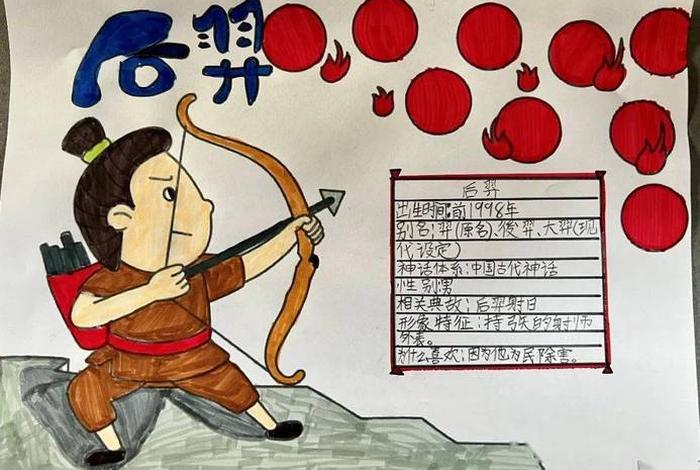 后羿
后羿
出生时间:前1998年
别名:羿(原名)、後羿、大羿(现
代设定)
神话体系:中国古代神话
性别:男
相关典故:后羿射日
形象特征:持弓矢的射师
外表。
为什么喜欢:因为他为民除害。